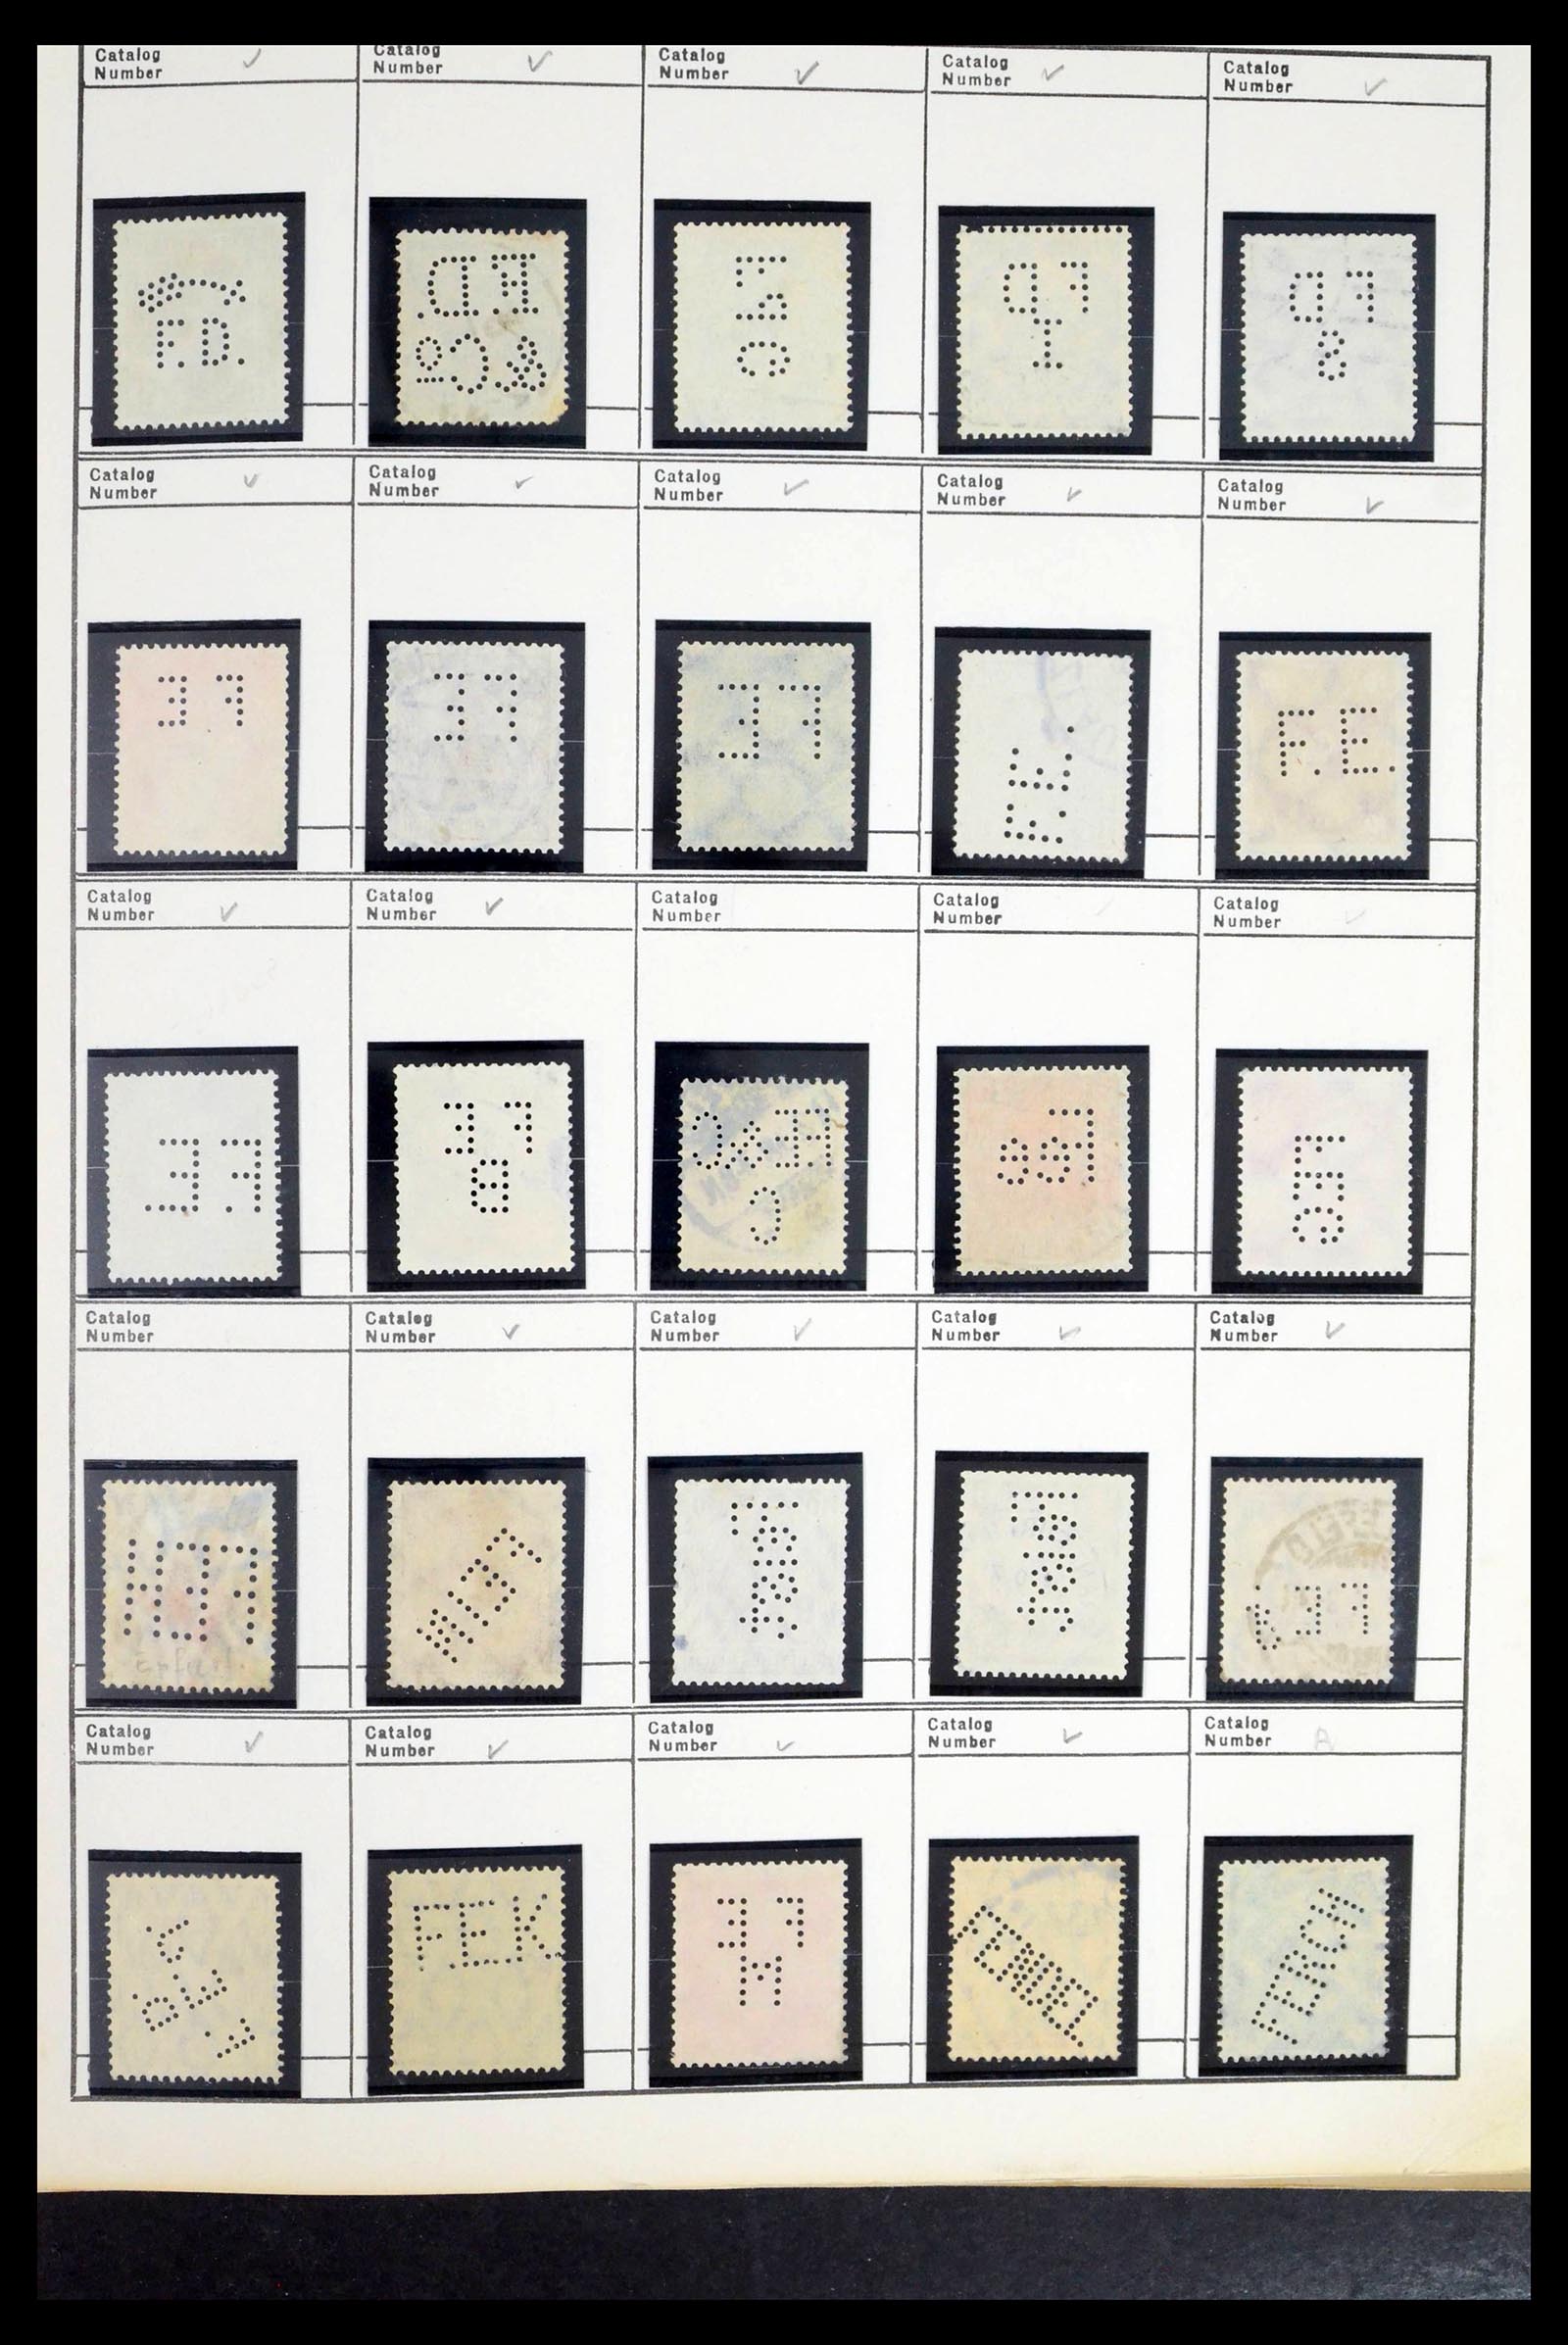 Catalog Number ✓ Catalog Number ✓ Catalog Number ✓ Catalog Number ✓ Catalog Number ✓
F.D.
F.D.
& Co
F D
I
F D
8
Catalog Number ✓ Catalog Number ✓ Catalog Number ✓ Catalog Number ✓ Catalog Number ✓
F E
F E
F E
F.E.
F.E.
Catalog Number ✓ Catalog Number ✓ Catalog Number Catalog Number Catalog Number ✓
F E
F E
B
F E & C
C
F E G
Catalog Number Catalog Number ✓ Catalog Number ✓ Catalog Number ✓ Catalog Number ✓
F E H
Erfurt.
Catalog Number ✓ Catalog Number ✓ Catalog Number ✓ Catalog Number ✓ Catalog Number A
FEK
F E
M
FERCH